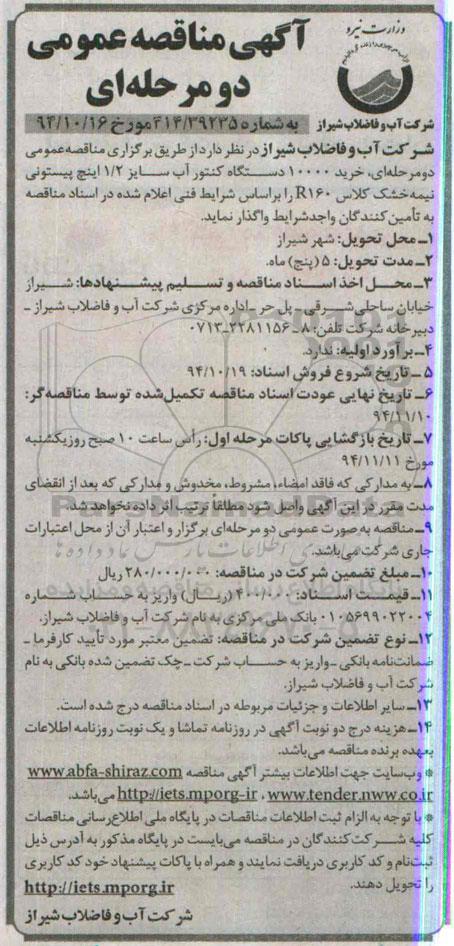 وزارت نیرو
شرکت آب و فاضلاب شیراز
آگهی مناقصه عمومی
دو مرحله‌ای
به شماره ۴۱۴/۳۹۲۳۵ مورخ ۹۴/۱۰/۱۶
شرکت آب و فاضلاب شیراز در نظر دارد از طریق برگزاری مناقصه عمومی
دومرحله‌ای، خرید ۱۰۰۰۰ دستگاه کنتور آب سایز ۱/۲ اینچ پیستونی
نیمه‌خشک کلاس R۱۶۰ را براساس شرایط فنی اعلام شده در اسناد مناقصه
به تأمین‌کنندگان واجدشرایط واگذار نماید.
۱ـ محل تحویل: شهر شیراز
۲ـ مدت تحویل: ۵ (پنج) ماه.
۳ـ محل اخذ اسناد مناقصه و تسلیم پیشنهادها: شیراز
خیابان ساحلی‌شرقی ـ پل حر ـ اداره مرکزی شرکت آب و فاضلاب شیراز ـ
دبیرخانه شرکت تلفن: ۸ـ۲۲۸۱۱۵۶ـ۰۷۱۳
۴ـ برآورد اولیه: ندارد.
۵ ـ تاریخ شروع فروش اسناد: ۹۴/۱۰/۱۹
۶ ـ تاریخ نهایی عودت اسناد مناقصه تکمیل‌شده توسط مناقصه‌گر:
۹۴/۱۱/۱۰
۷ـ تاریخ بازگشایی پاکات مرحله اول: رأس ساعت ۱۰ صبح روز یکشنبه
مورخ ۹۴/۱۱/۱۱
۸ـ به مدارکی که فاقد امضاء، مشروط، مخدوش و مدارکی که بعد از انقضای
مدت مقرر در این آگهی واصل شود مطلقاً ترتیب اثر داده نخواهد شد.
۹ـ مناقصه به صورت عمومی دو مرحله‌ای برگزار و اعتبار آن از محل اعتبارات
جاری شرکت می‌باشد.
۱۰ـ مبلغ تضمین شرکت در مناقصه: ۲۸۰/۰۰۰/۰۰۰ ریال
۱۱ـ قیمت اسناد: ۴۰۰/۰۰۰ (ریال) واریز به حساب شماره
۰۱۰۵۶۹۹۰۲۲۰۰۴ بانک ملی مرکزی به نام شرکت آب و فاضلاب شیراز.
۱۲ـ نوع تضمین شرکت در مناقصه: تضمین معتبر مورد تأیید کارفرما ـ
ضمانت‌نامه بانکی ـ واریز به حساب شرکت ـ چک تضمین شده بانکی به نام
شرکت آب و فاضلاب شیراز.
۱۳ـ سایر اطلاعات و جزئیات مربوطه در اسناد مناقصه درج شده است.
۱۴ـ هزینه درج دو نوبت آگهی در روزنامه تماشا و یک نوبت روزنامه اطلاعات
بعهده برنده مناقصه می‌باشد.
* وب‌سایت جهت اطلاعات بیشتر آگهی مناقصه www.abfa-shiraz.com
http://iets.mporg-ir ، www.tender.nww.co.ir می‌باشد.
* با توجه به الزام ثبت اطلاعات مناقصات در پایگاه ملی اطلاع‌رسانی مناقصات
کلیه شرکت‌کنندگان در مناقصه می‌بایست در پایگاه مذکور به آدرس ذیل
ثبت‌نام و کد کاربری دریافت نمایند و همراه با پاکات پیشنهاد خود کد کاربری
را تحویل دهند. http://iets.mporg.ir
شرکت آب و فاضلاب شیراز